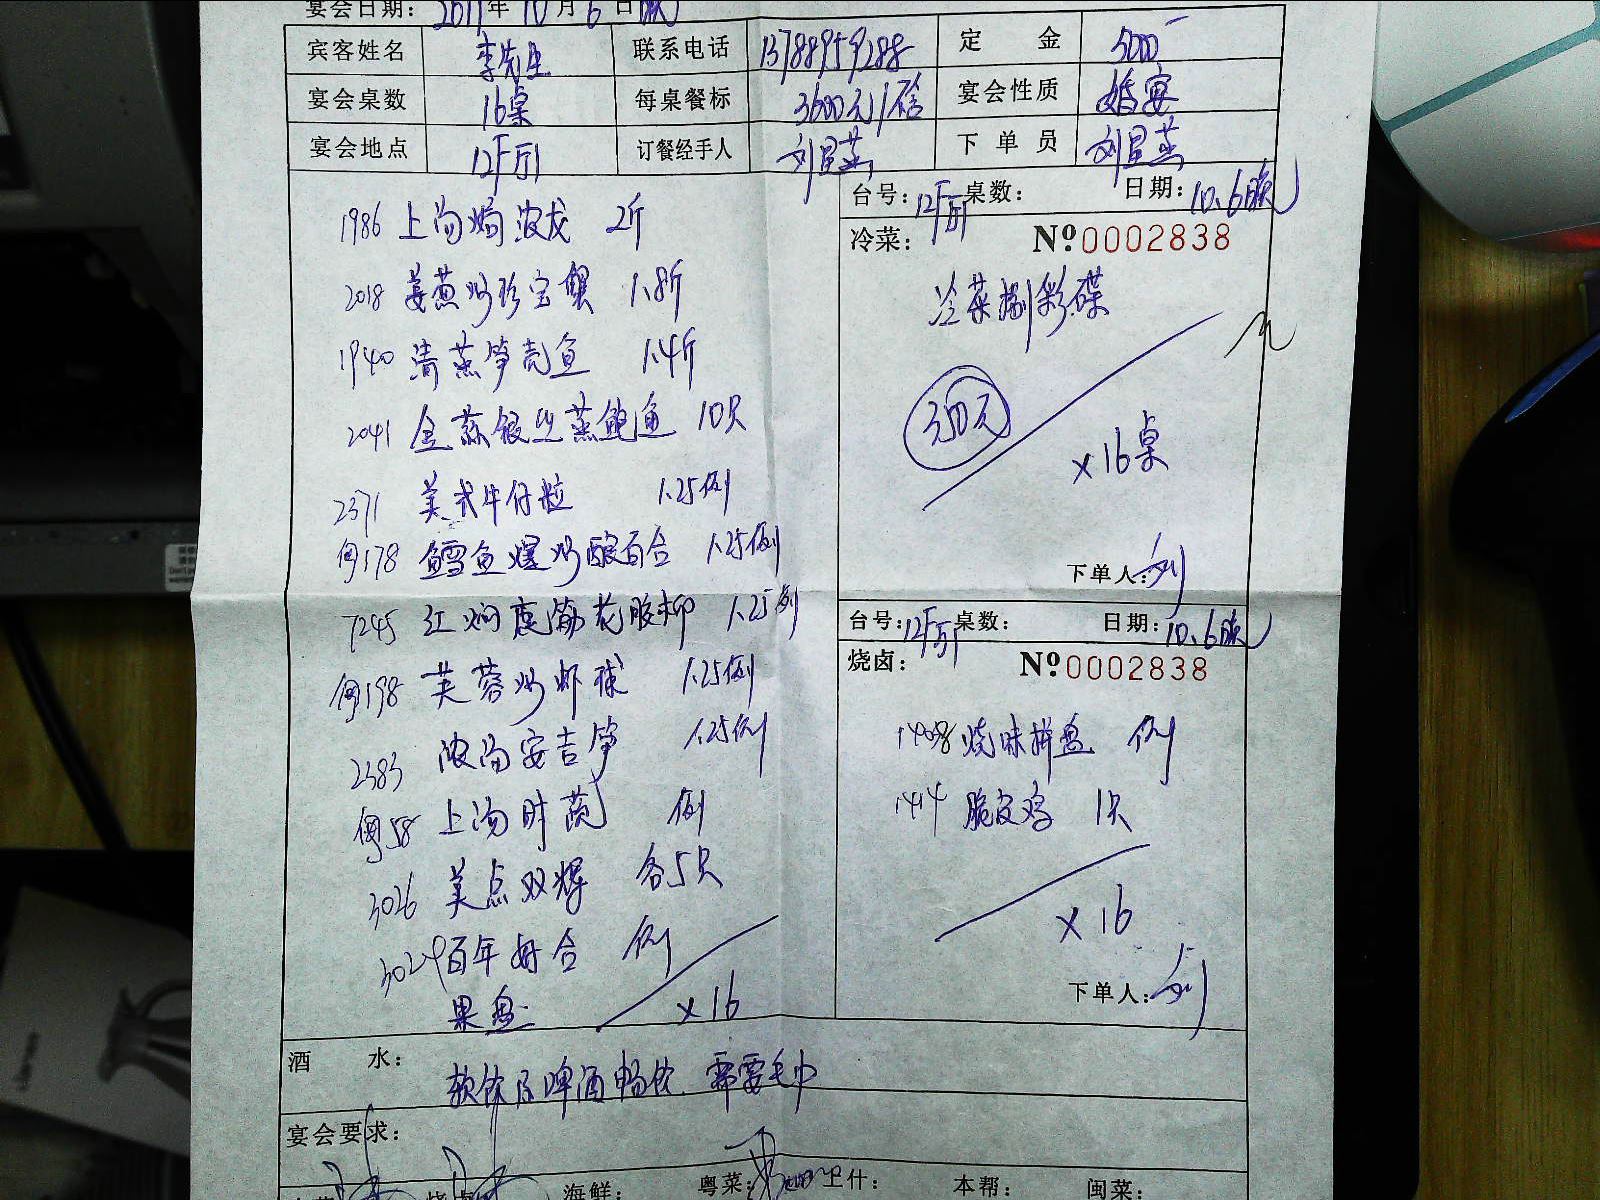 宴会日期: 2011年10月6日晚
宾客姓名 李先生 联系电话 13788959288 定 金 5000
宴会桌数 16桌 每桌餐标 3600元/桌 宴会性质 婚宴
宴会地点 12F厅 订餐经手人 刘昱燕 下 单 员 刘昱燕
1986 上汤焗波龙 2斤
2018 姜葱炒珍宝蟹 1.8斤
1940 清蒸笋壳鱼 1.4斤
2041 金蒜银丝蒸鲍鱼 10只
2371 美式牛仔粒 1.25例
例178 鳕鱼爆炒酿百合 1.25例
7245 红焖鹿筋花胶柳 1.25例
例198 芙蓉炒虾球 1.25例
2383 浓汤安吉笋 1.25例
例58 上汤时蔬 例
3026 美点双辉 各5只
3029 百年好合 例
果盘 ×16
台号: 12F厅 桌数: 日期: 10.6晚
冷菜: №0002838
冷菜捌彩碟
350元
×16桌
下单人: 刘
台号: 12F厅 桌数: 日期: 10.6晚
烧卤: №0002838
1408 烧味拼盘 例
1414 脆皮鸡 1只
×16
下单人: 刘
酒 水: 软饮及啤酒畅饮 需要毛巾
宴会要求:
海鲜: 粤菜: 上什: 本帮: 闽菜: